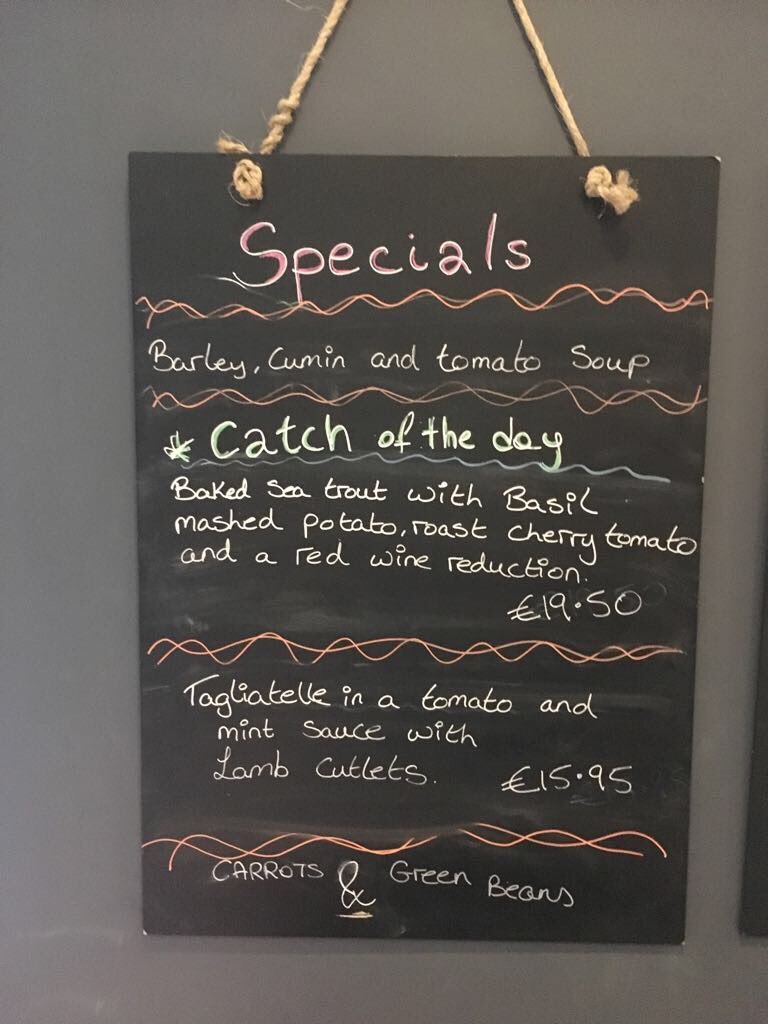 Specials
Barley, Cumin and tomato Soup
* Catch of the day
Baked Sea trout with Basil
mashed potato, roast cherry tomato
and a red wine reduction.
€19.50
Tagliatelle in a tomato and
mint Sauce with
Lamb Cutlets. €15.95
CARROTS & Green Beans